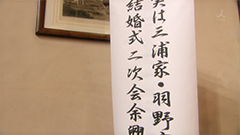 実は三浦家・羽野
結婚式二次会余興